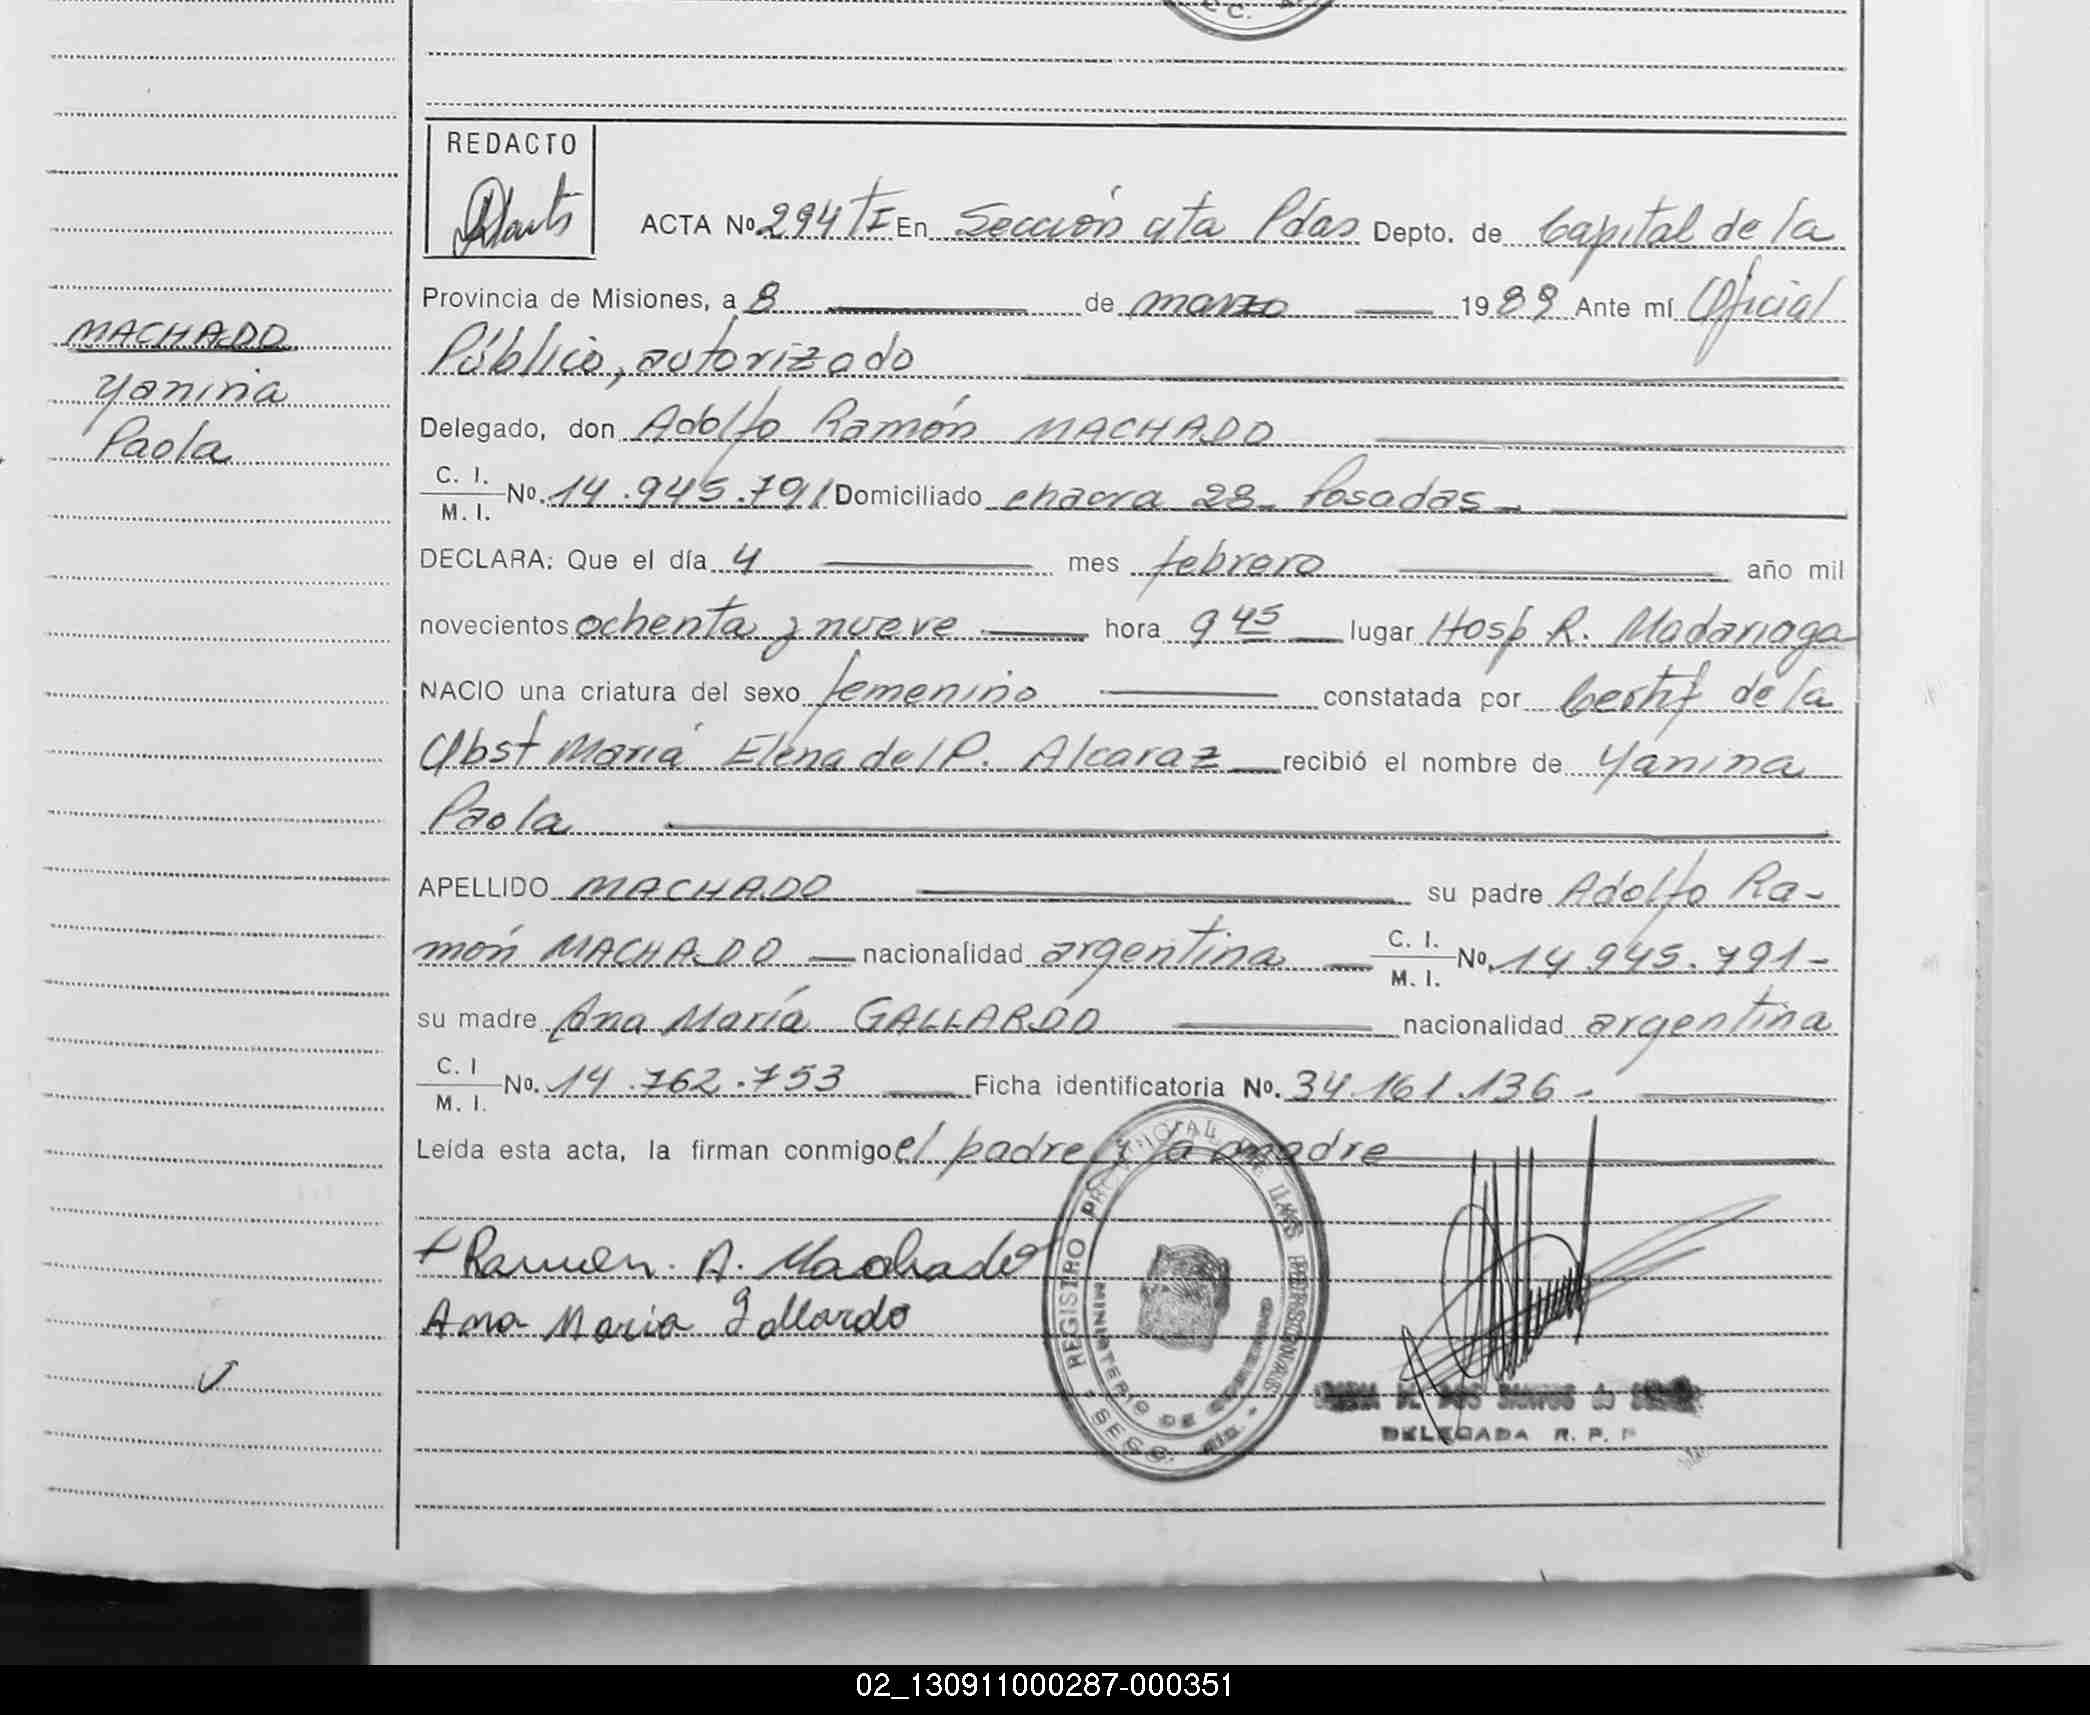 C.C.
REDACTO
ACTA Nº 294 TI En Sección 4ta Pdas Depto. de Capital de la
Provincia de Misiones, a 8 de marzo 1989 Ante mí Oficial
Público, autorizado
MACHADO
Yanina
Paola
Delegado, don Adolfo Ramón MACHADO
C. I.
M. I. Nº. 14.945.791 Domiciliado chacra 28 - Posadas -
DECLARA: Que el día 4 mes febrero año mil
novecientos ochenta y nueve hora 9 45 lugar Hosp R. Madariaga
NACIO una criatura del sexo femenino constatada por Certif de la
Obst María Elena del P. Alcaraz recibió el nombre de Yanina
Paola
APELLIDO MACHADO su padre Adolfo Ra-
món MACHADO nacionalidad argentina C. I.
M. I. Nº. 14 945.791-
su madre Ana María GALLARDO nacionalidad argentina
C. I
M. I. Nº. 14.762.753 Ficha identificatoria Nº. 34.161.136 -
Leída esta acta, la firman conmigo el padre y la madre
+ Ramón. A. Machado
Ana Maria Gallardo
REGISTRO PROVINCIAL DE LAS PERSONAS
MINISTERIO DE GOBIERNO
SECC.
DOS SANTOS de
DELEGADA R. P. P
02_130911000287-000351